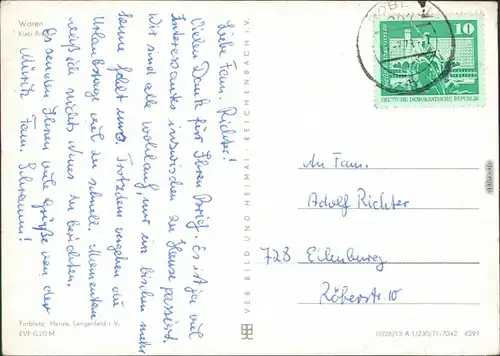 Waren
Klatz
Liebe Fam. Richter!
Vielen Dank für Ihren Brief. Es ist ja viel
Interessantes inzwischen zu Hause passiert.
Wir sind alle wohlauf, nur ein bischen mehr
Sonne fehlt uns. Trotzdem vergehen die
Urlaubstage viel zu schnell. Momentan
weiß ich nichts neues zu berichten.
Es senden Ihnen viele Grüße von der
Müritz Fam. Schramm!
Farbfoto: Henze, Lengenfeld i. V.
EVP 0,20 M
VEB BILD UND HEIMAT REICHENBACH I. V.
10
DEUTSCHE DEMOKRATISCHE REPUBLIK
An Fam.
Adolf Richter
728 Eilenburg
Röberstr. 10
(10/28/13 A 1/230/71-7042 6291